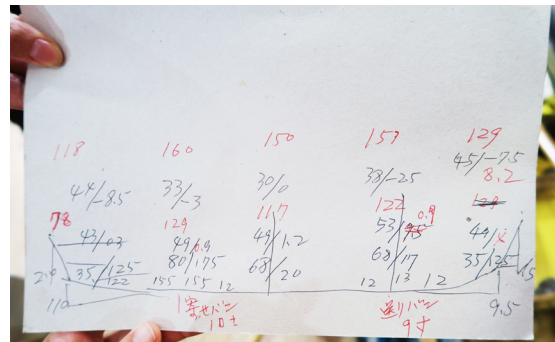 118 160 150 157 129
44/-8.5 33/-3 30/0 38/-25 45/-75
8.2
78 129 117 122 0.9
43/03 49/0.9 49/1.2 53/ 44/
35/125 80/175 68/20 68/17 35/125
122 155 155 12 12 13 12
110 9.5
1寄せバン 送りバン
10寸 9寸